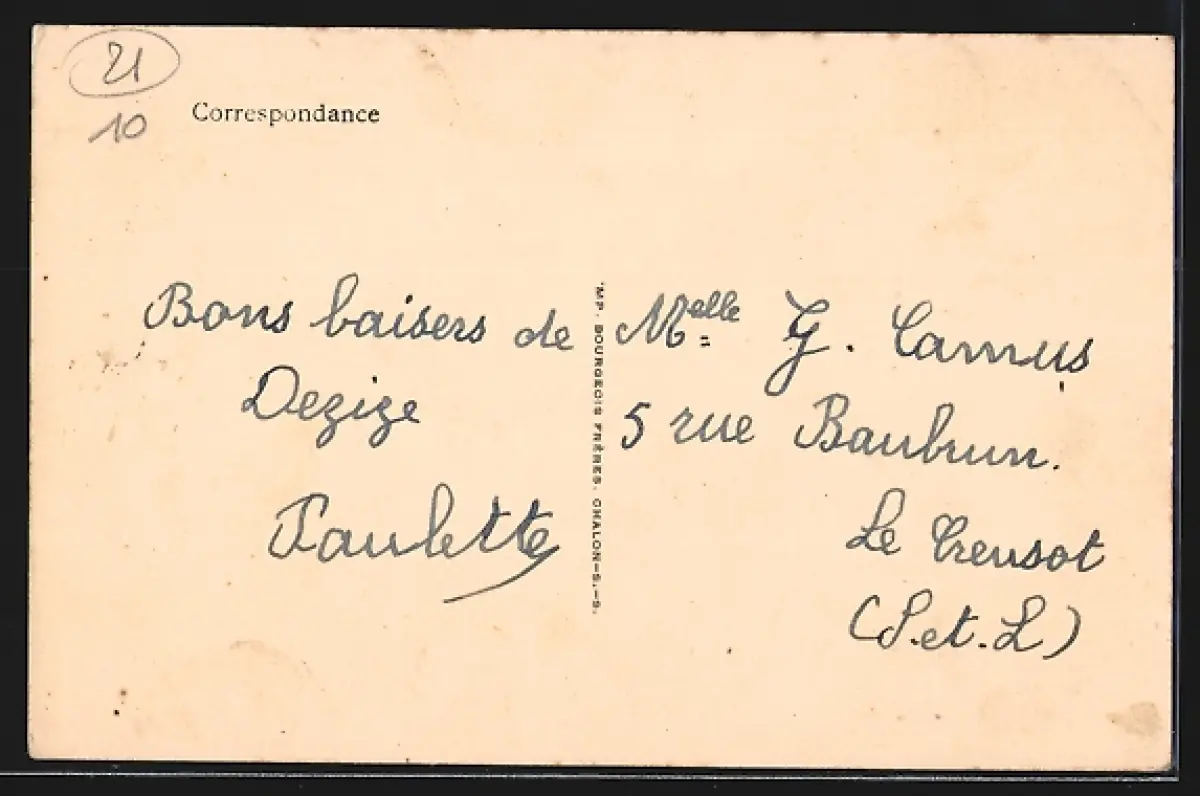 21
10
Correspondance
Bons baisers de
Dezize
Paulette
IMP. BOURGEOIS FRÈRES. CHALON-S.-S.
Melle G. Camus
5 rue Baubrun.
Le Creusot
(S.et.L)